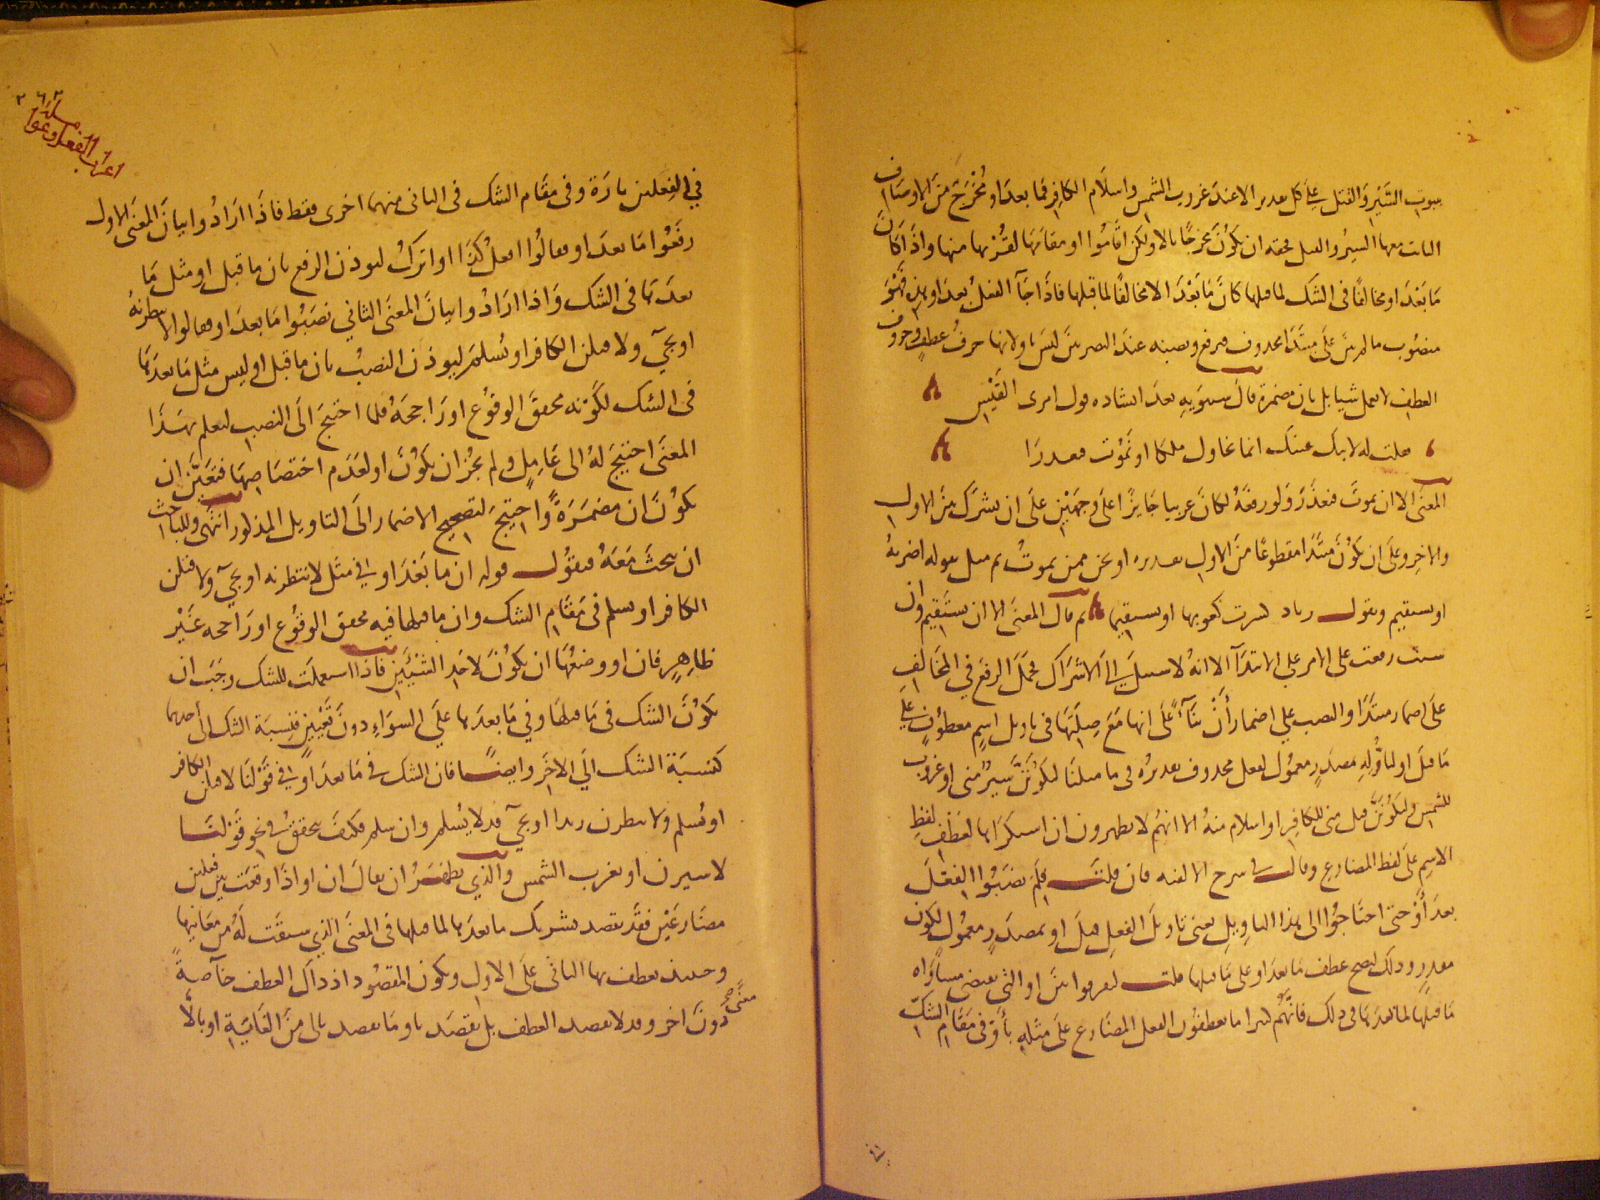 ثبوت السَّيْرِ وَالقتل عَلَى كل تقدير الا عند غروب الشمس واسلام الكافر فما بعد او مُخْرَج مِنَ الاوصاف
الثابت معها السير والقتل فحقه ان يكُونَ مخرجًا بالا ولكن اقاموا او مقامَهَا لقُرْبها منها وَاذا كَانَ
مَا بَعْدَ او مخالفًا فى الشك لما قبلها كانَ مَا بَعْدَ الا مخالفًا لما قبلها فاذا جَآ الفعل بعد او بهذين فَهْوَ
منصُوب ما لم يبن عَلَى مبتَدَا محذوف فيرفع ونصبه عند البصريين ليس باو لانها حرفُ عطفٍ وحروف
العطف لا تعمل شيا بل بان مضمرة قال سيبَويهِ بعد انشاده قول امرى القَيْسِ
فقلت له لا تبك عينك انما نحاول ملكا او نَمُوت فنعذرَا
المعنَى الا ان نموتَ فنعذَرَ وَلو رفعَهُ لكانَ عربيا جَايزًا عَلَى وجهَيْنِ عَلَى ان تشرَكَ بينَ الاول
والاخِر وعَلَى ان يكوُنَ مبتَدَا مقطوعًا مِنَ الاول تقديره او نحن ممن يموتُ ثم مثل بقوله اضربْهُ
او يستقيم وبقول زياد كسرت كعوبها او تستقيما ثم قال المعنَى الا ان تستَقِيم وان
شئت رفعت على الامر على الابتدَآ الا انهُ لا سبيلَ الى الاشراك فحمَلَ الرفعَ في المخَالفِ
عَلَى اضمار مبتَدَا والنصب على اضمار أَنْ بنَآءً عَلَى انها مَعَ صِلَتِهَا فى تاويل اسمٍ معطوُفٍ على
مَا قبلَ او لتاوُّلِهِ مصدرٍ معمُول لفعل محذوف تقديرُه فى ما مثلنَا ليكوُنَنَّ سيرٌ منى او غروب
للشمس وليَكوُنَنَّ قتل منى للكافر او اسلام منهُ الا انهُم لا يظهرون ان استكراها لعَطْفِ لفظِ
الاسم عَلَى لفظ المضارع وقال في شرح الالفيه فان قلتَ فلِمَ نصَبُوا الفعْلَ
بعدَ أَوْ حتى احتَاجُوا الى هذا التاوِيلِ يعنى تاويلَ الفعلِ قبلَ او بمصدَرٍ معمُولٍ لكون
مقدرٍ وذلك ليصح عطف مَا بعدَ او على مَا قبلها قلت ليفرقوا بينَ او التى تقتضى مساوَاه
مَا قبلها لما بعدَهَا فى ذلك فانَّهُم كثيرا ما يعطفُون الفعل المضَارع عَلَى مثلهِ بِأَوْ فى مَقَامِ الشَّكِ
مسلة
اعراب الفعل وعوا
٢٦٣
فِي الفِعْلَيْن تارَة وفى مقَام الشك فى الثانى منهما اخرى فقط فاذَا ارَادُوا بيانَ المعنَى الاول
رفَعُوا مَا بعدَ او فقالُوا افعلُ كذَا او اتركُ ليوذن الرفع بان ما قبل او مثل مَا
بعدَهَا فى الشك وَاذا ارَادُوا بيانَ المعنَى الثانى نصَبُوا مَا بعدَ او فقالوا لانتظرنهُ
او يجِيَ ولاقتلن الكافر او يُسْلمَ ليوذنَ النصْبُ بان ما قبل او ليس مثل مَا بعدَهَا
فى الشك لكَوْنهِ محققَ الوقوُع او رَاجحَهُ فلما احتيجَ الَى النصب ليعلم بهَذَا
المعنَى احتيجَ لهُ الى عَامِلٍ ولم يجُز ان يكوُنَ او لعَدَم اختصَاصِهَا فتعَيَّنَ ان
يكوُنَ ان مضمَرَةً وَاحتيجَ لتصحيح الاضمار الَى التاويل المذكور انتهى وللباحث
ان يبحثَ مَعَهُ فيقوُل قوله ان ما بعْدَ او فِي مثَل لانتظرنه او يجِيَ ولاقتلن
الكافر او يسلم فى مَقَام الشك وان ما قبلها فيه محقق الوقوُع او رَاجحه غَيْر
ظاهِرٍ فان او وضعُهَا ان يكوُنَ لاحَدِ الشَّيْئَيْن فاذا استعملت للشك وجَبَ ان
يكوُنَ الشك فى مَا قبلهَا وفى مَا بعدَهَا على السوَاءِ دونَ تَعْيِينٍ فنسبَة الشك الى احدهما
كنسبَة الشك الَي الاخَر وايضًا فان الشك فى مَا بعدَ او في قوْلنَا لاقتلن الكافر
او يُسْلم وَلانتظرن زيدا او يجِيَ قد لا يُسْلم وان سلم فكَيفَ يتحققُ فى نحو قوْلنَا
لاسيرن او تغرب الشمس والذي يظهَرُ ان يقالَ ان او اذَا وقعت بين فعلين
مضَارعَيْن فقَد يقصد تشريك ما بعدَها لما قبلها فى المعنَى الذي سيقت لَهُ من معَانيها
وحينيذ يعطف بها الثانى علَى الاول ويكون المقصُود اذ ذاكَ العطف خآصةً
دونَ معنًى اخر وقد لا يقصد العطف بل يقصَد باو مَا يقصد بالى مِنَ الغَايَةِ او بالَّا